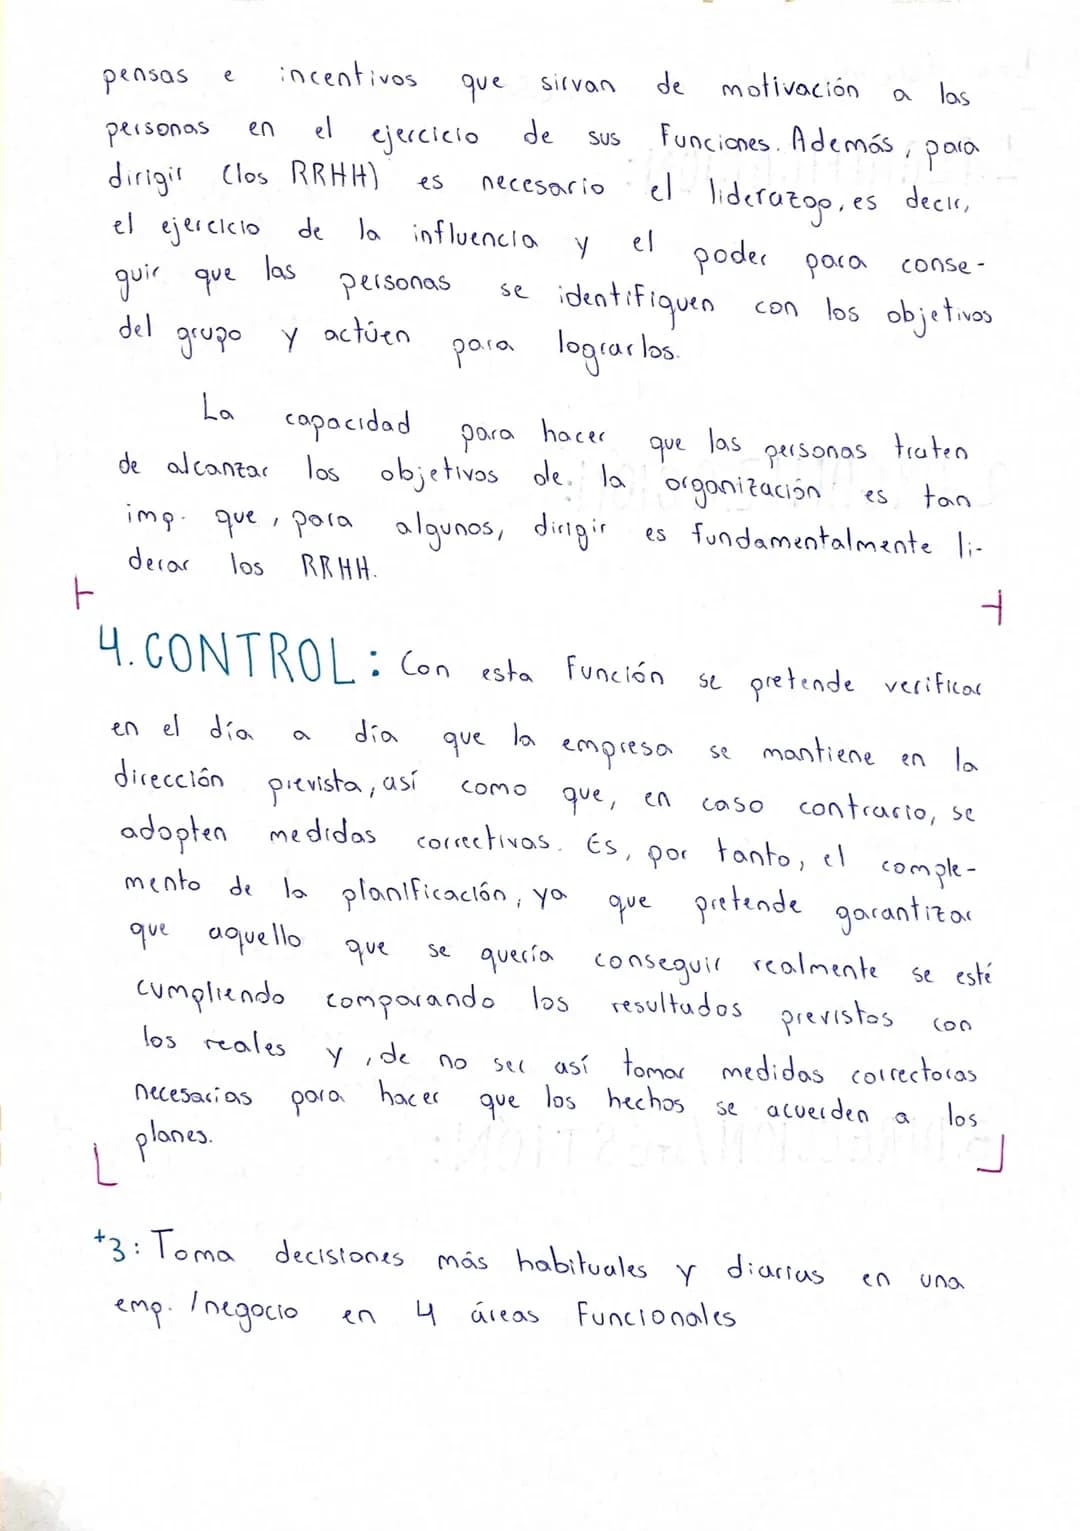 pensas e incentivos que sirvan de motivación a las
personas en el ejercicio de sus Funciones. Además, para
dirigir (los RRHH) es necesario el liderazgo, es decir,
el ejercicio de la influencia y el poder para conse-
guir que las personas se identifiquen con los objetivos
del grupo y actúen para lograrlos.
La capacidad para hacer que las personas traten
de alcanzar los objetivos de la organización es tan
imp. que, para algunos, dirigir es fundamentalmente li-
derar los RRHH.
4. CONTROL: Con esta Función se pretende verificar
en el día a día que la empresa se mantiene en la
dirección prevista, así como que, en caso contrario, se
adopten medidas correctivas. Es, por tanto, el comple-
mento de la planificación, ya que pretende garantizar
que aquello que se quería conseguir realmente se esté
cumpliendo comparando los resultados previstos con
los reales y, de no ser así tomar medidas correctoras
necesarias para hacer que los hechos se acuerden a los
planes.
+3: Toma decisiones más habituales y diarias en una
emp. / negocio en 4 áreas Funcionales